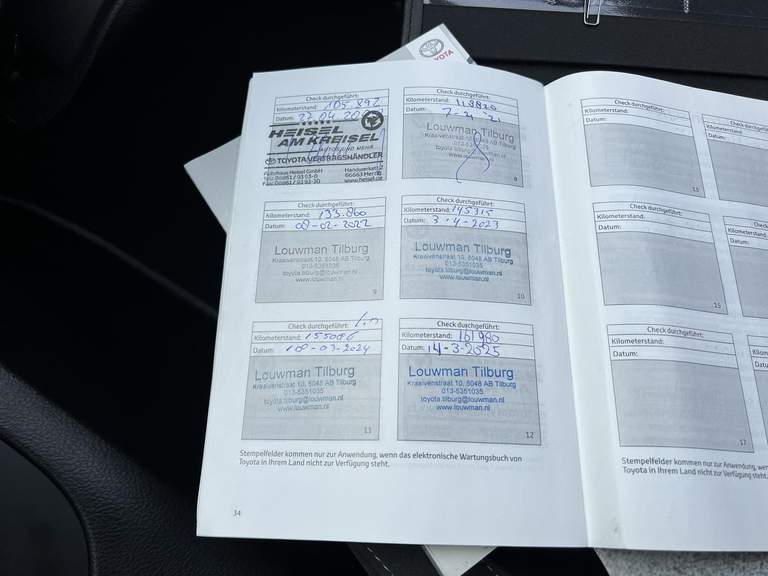 TOYOTA
Check durchgeführt:
Kilometerstand: 105.892
Datum: 22.04.2020
HEISEL
AM KREISEL
TOYOTA VERTRAGSHÄNDLER
Autohaus Heisel GmbH
Check durchgeführt:
Kilometerstand: 118820
Datum: 7-4-'21
Louwman Tilburg
toyota.tilburg@louwman.nl
www.louwman.nl
8
Check durchgeführt:
Kilometerstand: 133.860
Datum: 08-02-2022
Louwman Tilburg
Kraaivenstraat 10, 5048 AB Tilburg
013-5351035
toyota.tilburg@louwman.nl
www.louwman.nl
9
Check durchgeführt:
Kilometerstand: 145315
Datum: 3-4-2023
Louwman Tilburg
Kraaivenstraat 10, 5048 AB Tilburg
013-5351035
toyota.tilburg@louwman.nl
www.louwman.nl
10
Check durchgeführt:
Kilometerstand: 155086
Datum: 18-03-2024
Louwman Tilburg
Kraaivenstraat 10, 5048 AB Tilburg
013-5351035
toyota.tilburg@louwman.nl
www.louwman.nl
11
Check durchgeführt:
Kilometerstand: 161980
Datum: 14-3-2025
Louwman Tilburg
Kraaivenstraat 10, 5048 AB Tilburg
013-5351035
toyota.tilburg@louwman.nl
www.louwman.nl
12
Stempelfelder kommen nur zur Anwendung, wenn das elektronische Wartungsbuch von
Toyota in Ihrem Land nicht zur Verfügung steht.
34
Check durchgeführt:
Kilometerstand:
Datum:
13
Check durchgeführt:
Kilometerstand:
Datum:
15
Check durchgeführt:
Kilometerstand:
Datum:
17
Kilometerstand
Datum:
Stempelfelder kommen nur zur Anwendung, wenn
Toyota in Ihrem Land nicht zur Verfügung steht.